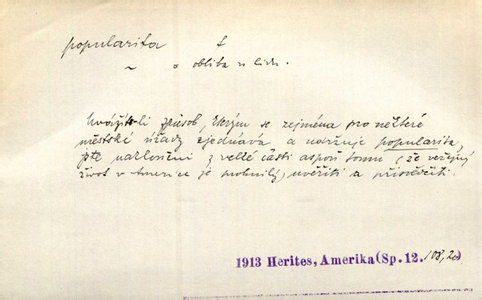 popularita f
~ o obliba u lidu.
Uvážíte-li způsob, kterým se zejména pro některé
městské úřady zjednává a udržuje popularita,
jste nakloněni z velké části aspoň tomu, že veřejný
život v Americe je prohnilý, uvěřiti a přisvědčiti.
1913 Herites, Amerika (Sp. 12. 108, 20)